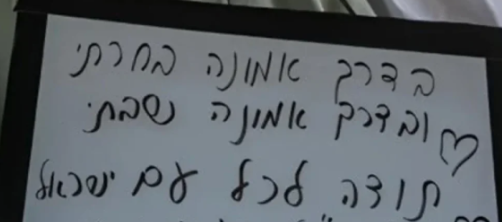 בדרך אמונה בחרתי
ובדרך אמונה נשבתי ♡
תודה לכל עם ישראל